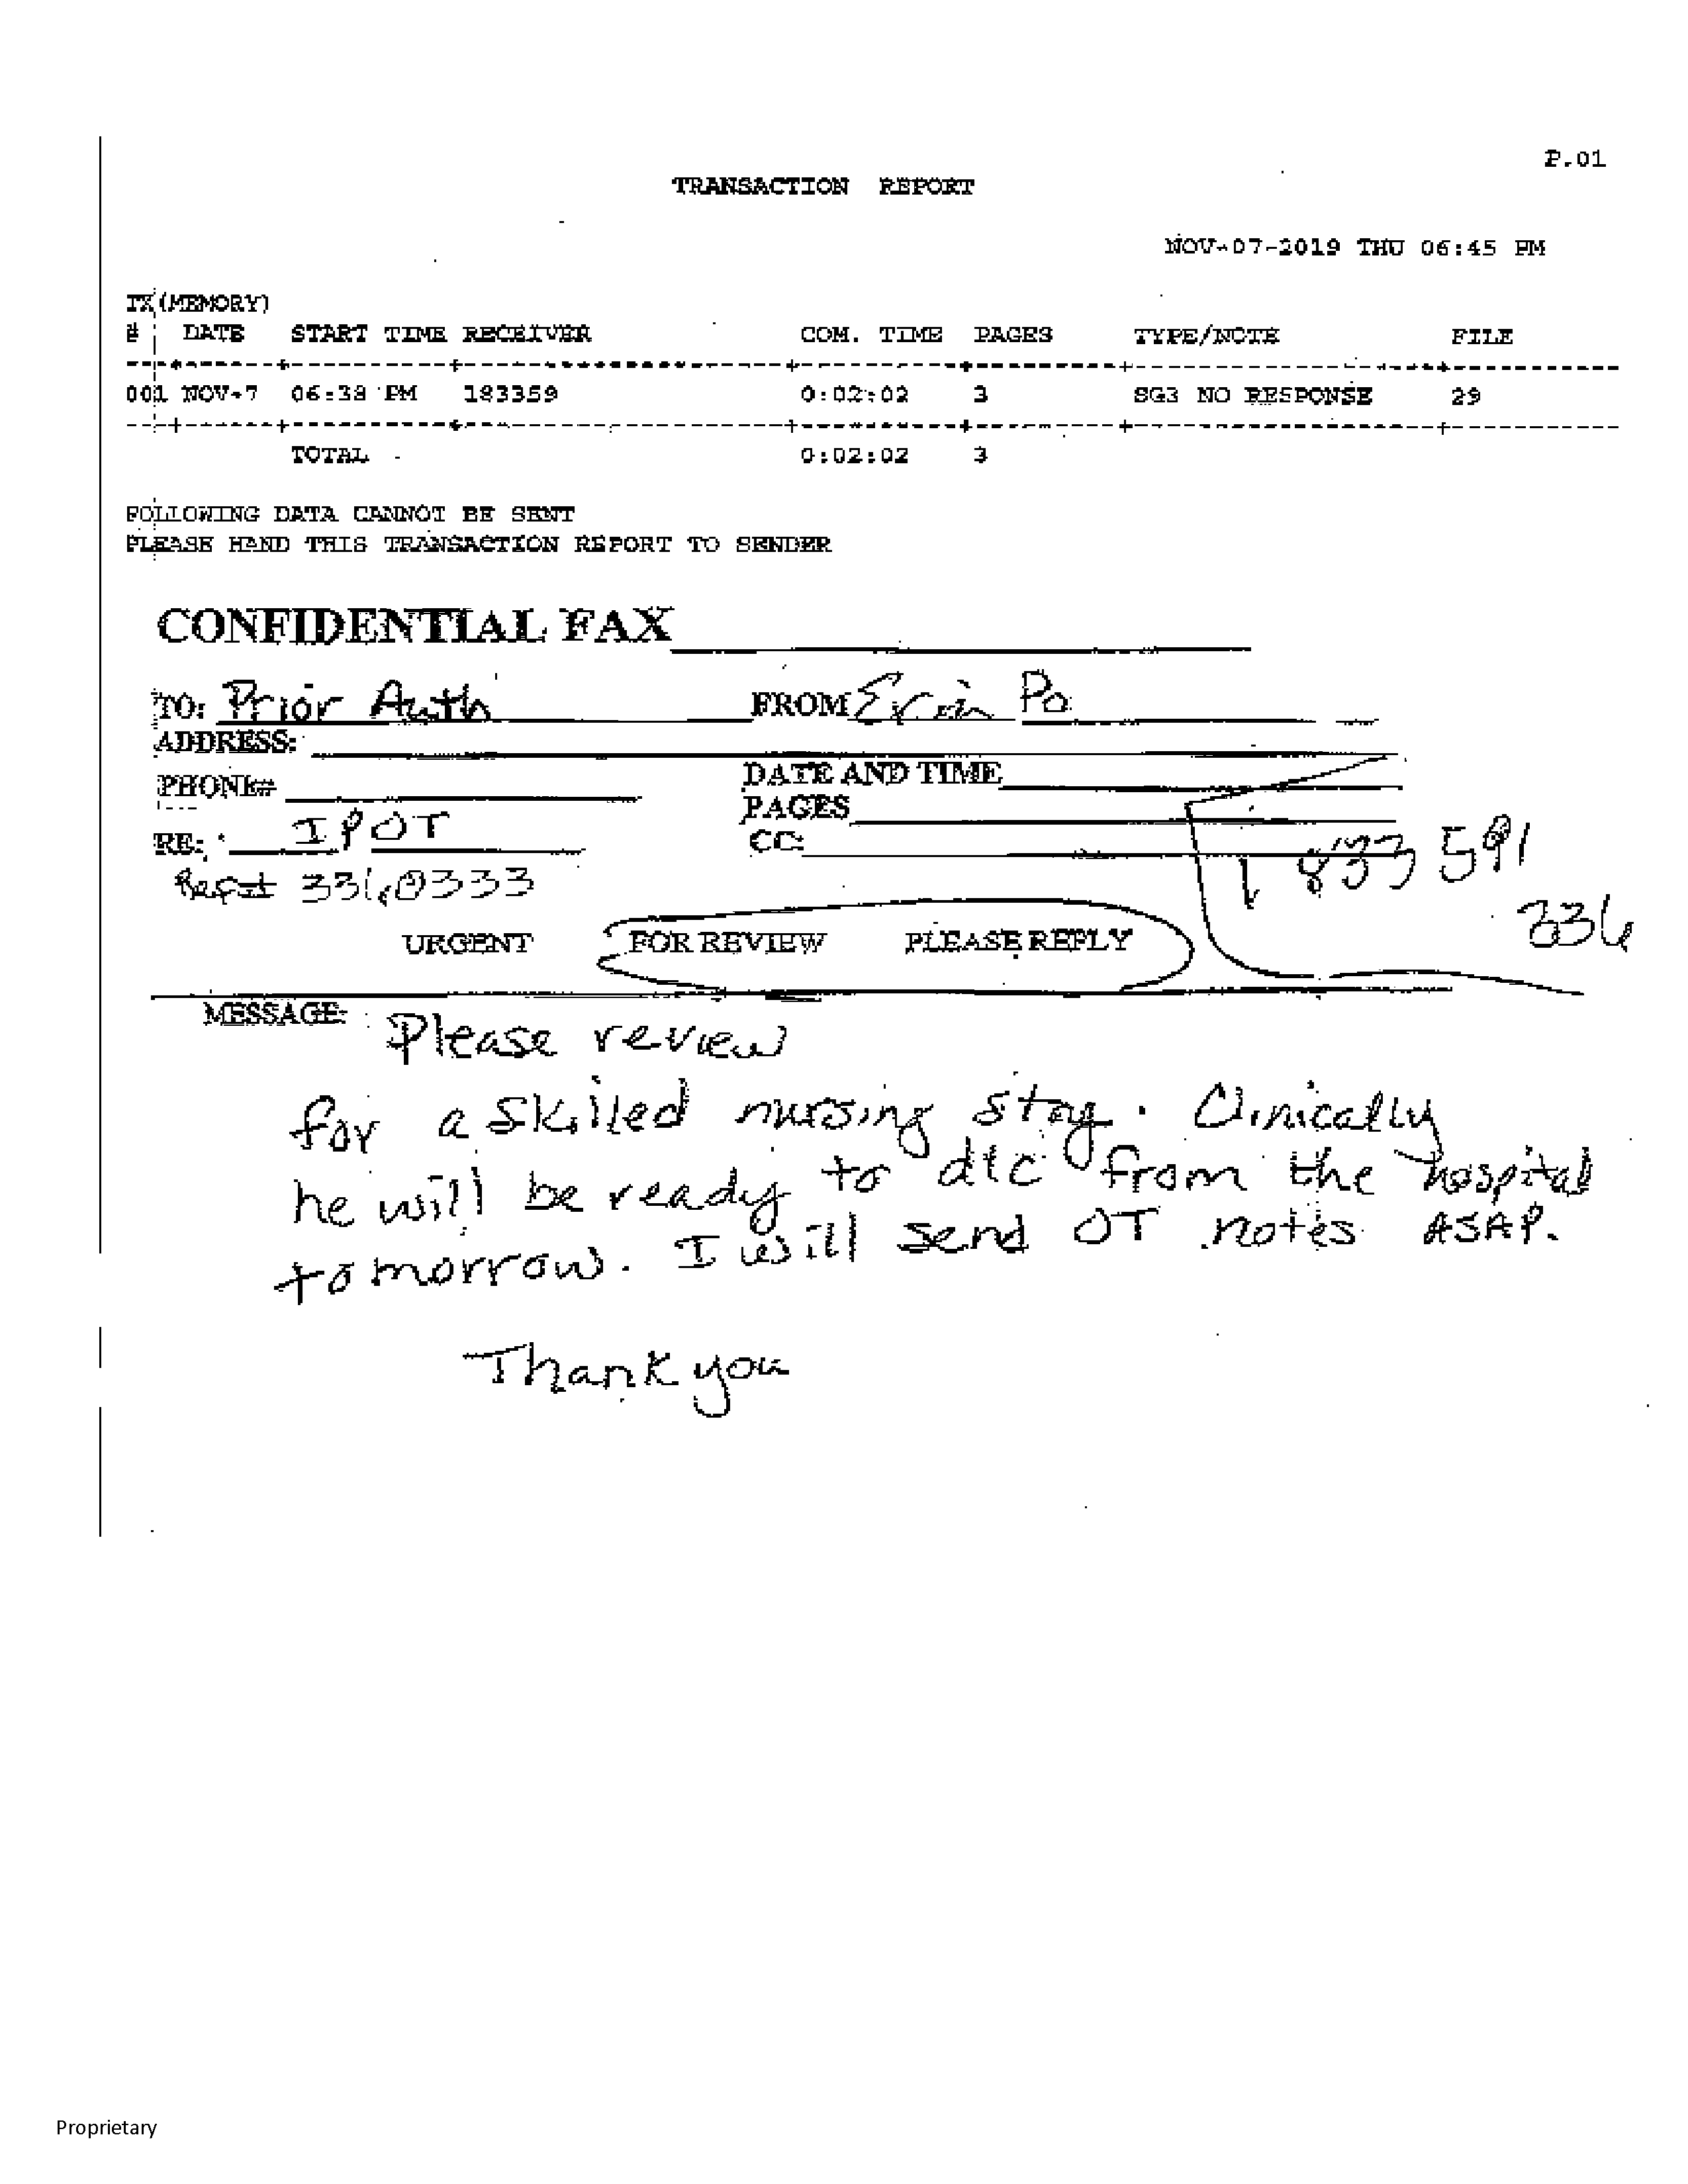 P.01
TRANSACTION REPORT
NOV-07-2019 THU 06:45 PM
TX(MEMORY)
# DATE START TIME RECEIVER COM. TIME PAGES TYPE/NOTE FILE
001 NOV-7 06:38 PM 183359 0:02:02 3 SG3 NO RESPONSE 29
TOTAL 0:02:02 3
FOLLOWING DATA CANNOT BE SENT
PLEASE HAND THIS TRANSACTION REPORT TO SENDER
CONFIDENTIAL FAX
TO: Prior Auth FROM Erin Po
ADDRESS:
PHONE# DATE AND TIME
PAGES
RE: IPOT CC:
1 833 591
336
Ref# 3360333
URGENT FOR REVIEW PLEASE REPLY
MESSAGE: Please review
for a skilled nursing stay. Clinically
he will be ready to d/c from the hospital
tomorrow. I will send OT notes ASAP.
Thank you
Proprietary